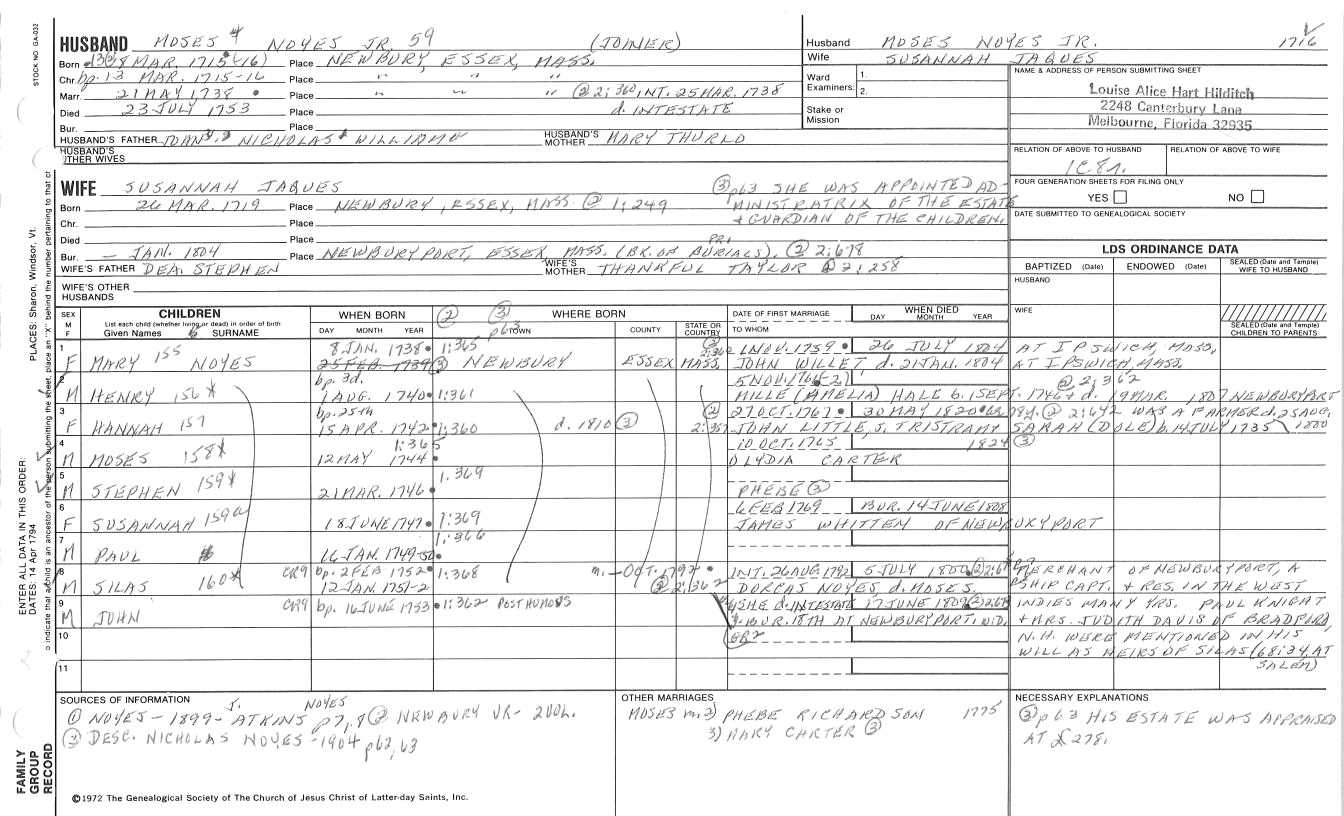 STOCK NO. GA-032
HUSBAND MOSES 4 NOYES JR. 59 (JOINER)
Born 8 MAR. 1715(-16) Place NEWBURY, ESSEX, MASS.
Chr. bp. 13 MAR. 1715-16 Place " " "
Marr. 21 MAY 1738 Place " " " ② 2:360 INT. 25 MAR. 1738
Died 23 JULY 1753 Place d. INTESTATE
Bur. Place
HUSBAND'S FATHER JOHN NICHOLAS WILLIAM HUSBAND'S MOTHER MARY THURLO
HUSBAND'S OTHER WIVES
Husband MOSES NOYES JR. 1716
Wife SUSANNAH JAQUES
Ward Examiners: 1. 2.
Stake or Mission
NAME & ADDRESS OF PERSON SUBMITTING SHEET
Louise Alice Hart Hilditch
2248 Canterbury Lane
Melbourne, Florida 32935
RELATION OF ABOVE TO HUSBAND RELATION OF ABOVE TO WIFE
1C8r.
FOUR GENERATION SHEETS FOR FILING ONLY
YES NO
DATE SUBMITTED TO GENEALOGICAL SOCIETY
WIFE SUSANNAH JAQUES
③ p63 SHE WAS APPOINTED AD-
MINISTRATRIX OF THE ESTATE
+ GUARDIAN OF THE CHILDREN.
Born 26 MAR. 1719 Place NEWBURY, ESSEX, MASS. ② 1:249
Chr. Place
Died Place
Bur. — JAN. 1804 Place NEWBURYPORT, ESSEX, MASS. (BK. OF BURIALS), PR1 ② 2:678
WIFE'S FATHER DEA. STEPHEN WIFE'S MOTHER THANKFUL TAYLOR ② 2:258
WIFE'S OTHER HUSBANDS
LDS ORDINANCE DATA
BAPTIZED (Date) ENDOWED (Date) SEALED (Date and Temple) WIFE TO HUSBAND
HUSBAND
WIFE
SEALED (Date and Temple) CHILDREN TO PARENTS
SEX M F CHILDREN
List each child (whether living or dead) in order of birth
Given Names SURNAME
WHEN BORN DAY MONTH YEAR
② ③ p63 WHERE BORN TOWN COUNTY STATE OR COUNTRY
DATE OF FIRST MARRIAGE TO WHOM
WHEN DIED DAY MONTH YEAR
1 8 JAN. 1738 1:365 ② 2:362 1 NOV. 1759 26 JULY 1804 AT IPSWICH, MASS.
F MARY 155 NOYES 25 FEB. 1739 ③ NEWBURY ESSEX MASS. JOHN WILLET, d. 21 JAN. 1804 AT IPSWICH, MASS.
2 bp. 3d. 5 NOV. 1761(-2) ② 2:362
M HENRY 156x 1 AUG. 1740 1:361 MILLE (AMELIA) HALE b. 1 SEPT. 1746 + d. 19 MAR. 1807 NEWBURYPORT
3 bp. 25th ② 27 OCT. 1767 30 MAY 1820 78y. ② 2:642 WAS A FARMER d. 25 AUG. 1800
F HANNAH 157 15 APR. 1742 1:360 d. 1810 ③ 2:357 JOHN LITTLE, S. TRISTRAM SARAH (DOLE) b. 14 JULY 1735
4 1:365 10 OCT. 1765 1824 ③
M MOSES 158x 12 MAY 1744 LYDIA CARTER
5 1:369
M STEPHEN 159x 21 MAR. 1746 PHEBE ③
6 6 FEB 1769 BUR. 14 JUNE 1808
F SUSANNAH 159a 18 JUNE 1747 1:369 JAMES WHITTEN OF NEWBURYPORT
7 1:366
M PAUL 16 JAN. 1749-50
8 CR9 bp. 2 FEB 1752 1:368 m. — OCT. 1792 INT. 26 AUG. 1792 5 JULY 1800 MERCHANT OF NEWBURYPORT, A
M SILAS 160x 12 JAN. 1751-2 ② 2:362 DORCAS NOYES, d. MOSES. SHIP CAPT. + RES. IN THE WEST
9 CR9 SHE d. INTESTATE 17 JUNE 1809 INDIES MANY YRS. PAUL KNIGHT
M JOHN bp. 16 JUNE 1753 1:362 POSTHUMOUS BUR. 18TH AT NEWBURYPORT. WID. + MRS. JUDITH DAVIS OF BRADFORD,
10 GR2 N.H. WERE MENTIONED IN HIS
WILL AS HEIRS OF SILAS (68:34 AT
11 SALEM)
SOURCES OF INFORMATION
① NOYES - 1899 - J. ATKINS NOYES p7,8 ② NEWBURY VR - 2VOL.
③ DESC. NICHOLAS NOYES - 1904 p62,63
OTHER MARRIAGES
MOSES m. 2) PHEBE RICHARDSON 1775
3) MARY CARTER ③
NECESSARY EXPLANATIONS
③ p63 HIS ESTATE WAS APPRAISED
AT £278.
©1972 The Genealogical Society of The Church of Jesus Christ of Latter-day Saints, Inc.
FAMILY GROUP RECORD
ENTER ALL DATA IN THIS ORDER:
DATES: 14 Apr 1794
PLACES: Sharon, Windsor, Vt.
to indicate that a child is an ancestor of the person submitting the sheet, place an "X" behind the number pertaining to that child